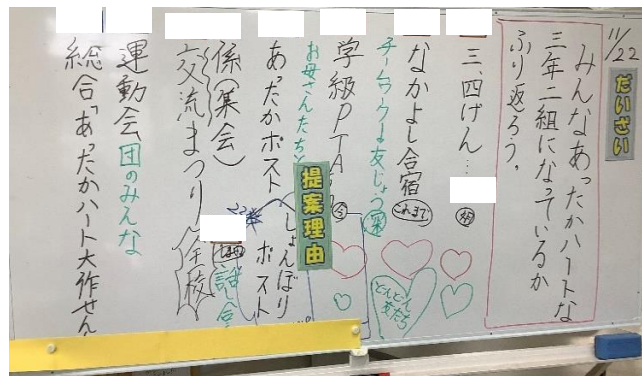 11/22
だいさい
みんなあったかハートな
三年二組になっているか
ふり返ろう。
三、四げん…
なかよし合宿
これまで
チームワーク 友じょう
どんどん
友だち
学級PTA
今
お母さんたちと
提案理由
あったかポスト
しょんぼり
ポスト
係(集会)
交流まつり
全校
話し合
運動会団のみんな
総合「あったかハート大作せん